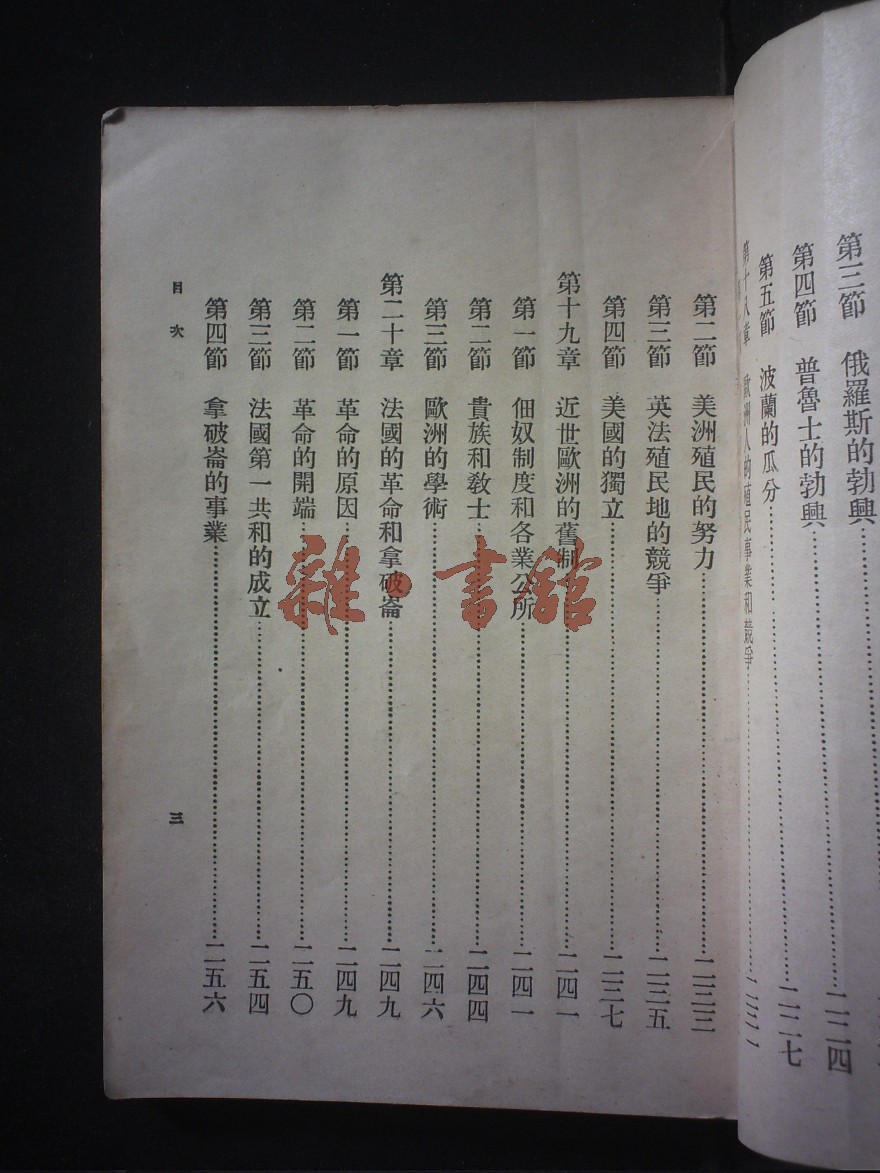 第三節　俄羅斯的勃興
第四節　普魯士的勃興……二二四
第五節　波蘭的瓜分……二二七
第十八章　歐洲人的殖民事業和競爭……二三一
第二節　美洲殖民的努力……二三三
第三節　英法殖民地的競爭……二三五
第四節　美國的獨立……二三七
第十九章　近世歐洲的舊制……二四一
第一節　佃奴制度和各業公所……二四一
第二節　貴族和教士……二四四
第三節　歐洲的學術……二四六
第二十章　法國的革命和拿破崙……二四九
第一節　革命的原因……二四九
第二節　革命的開端……二五〇
第三節　法國第一共和的成立……二五四
第四節　拿破崙的事業……二五六
目次
三
雜·書館